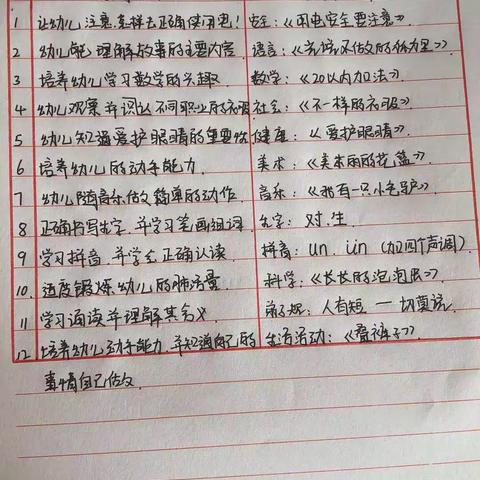 1 让幼儿注意怎样去正确使用电! 安全:《用电安全要注意》
2 幼儿能理解故事的主要内容. 语言:
3 培养幼儿学习数学的兴趣 数学:《20以内加法》.
4 幼儿观察并识认不同职业的衣服 社会:《不一样的衣服》
5 幼儿知道爱护眼睛的重要性 健康:《爱护眼睛》.
6 培养幼儿的动手能力. 美术:《美丽的花篮》
7 幼儿随音乐做简单的动作. 音乐:《我有一只小毛驴》.
8 正确书写生字,并学习笔画组词. 生字:对.生
9 学习拼音,并学会正确认读. 拼音:un. ün (加四个声调).
10 适度锻炼幼儿的肺活量 科学:《长长的泡泡虫》.
11 学习诵读并理解其含义 弟子规:人有短 一切莫说.
12 培养幼儿动手能力,并知道自己的 生活活动:《叠裤子》.
事情自己做.